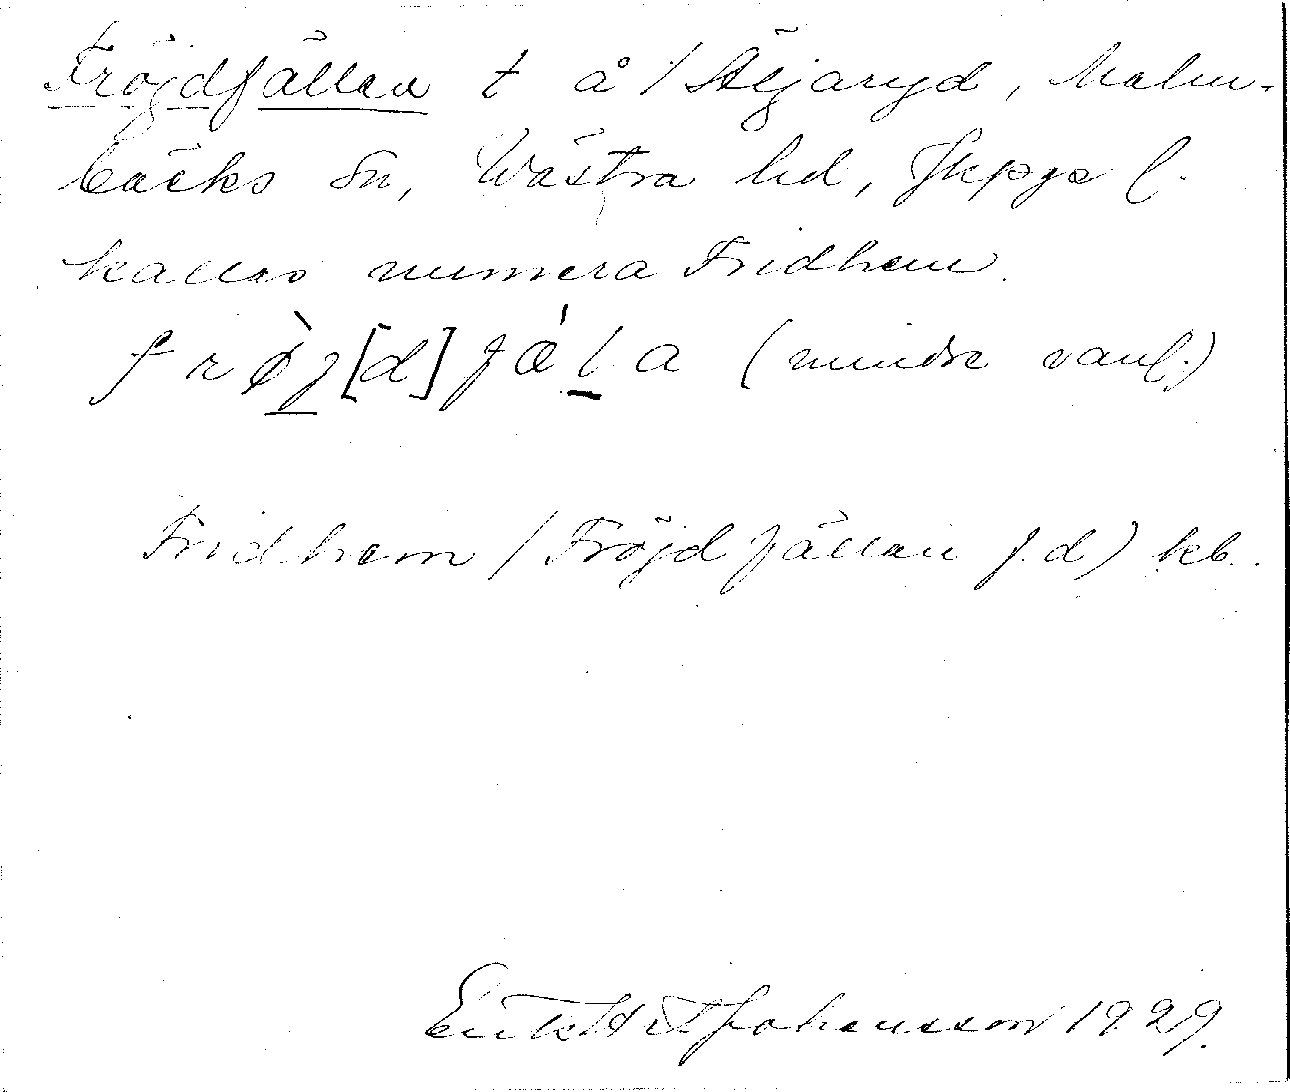 Fröjdfällan t å / Äljaryd, Malm-
bäcks Sn, Västra hd, Jkpgs l.
kallas numera Fridhem.
frø̀j[d]fæ̍la (mindre vanl.)
Fridhem / Fröjdfällan f.d) kb.
Johansson 1929.